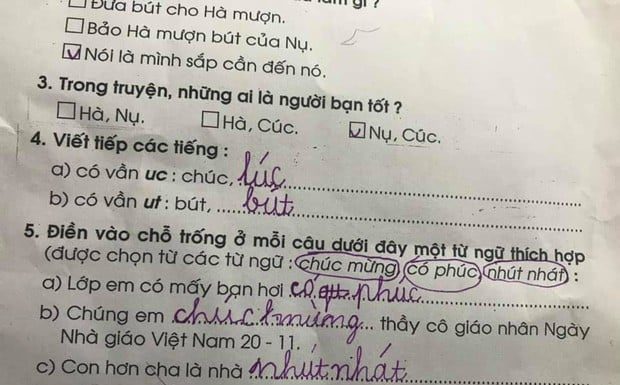 Đưa bút cho Hà mượn.
Bảo Hà mượn bút của Nụ.
Nói là mình sắp cần đến nó.
3. Trong truyện, những ai là người bạn tốt ?
Hà, Nụ. Hà, Cúc. Nụ, Cúc.
4. Viết tiếp các tiếng :
a) có vần uc : chúc, lúc
b) có vần ut : bút, bút
5. Điền vào chỗ trống ở mỗi câu dưới đây một từ ngữ thích hợp
(được chọn từ các từ ngữ : chúc mừng, có phúc, nhút nhát) :
a) Lớp em có mấy bạn hơi có phúc
b) Chúng em chúc mừng... thầy cô giáo nhân Ngày
Nhà giáo Việt Nam 20 - 11.
c) Con hơn cha là nhà nhút nhát